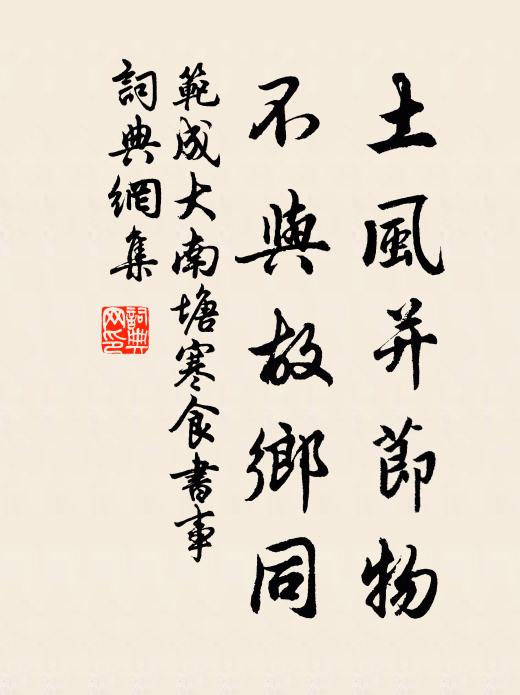 土風并節物
不與故鄉同
範成大南塘寒食書事
詞典網集
詞典网印